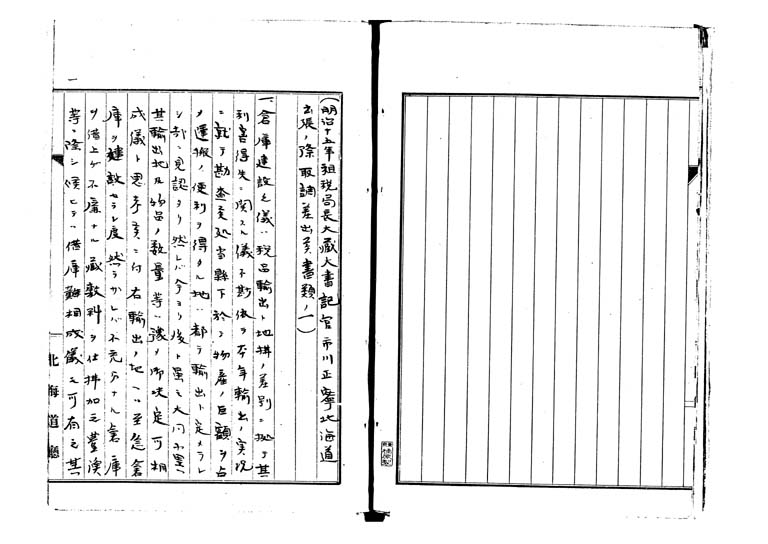 (明治十五年租税局長大蔵大書記官市川正寧北海道
出張ノ際取調差出候書類ノ一)
一倉庫建設之儀ハ税品輸出ト地捌ノ差別ニ拠テ其
利害得失ニ関スル儀ニ斯候ヲ本年輸出ノ実況
ニ就テ勘査候処当縣下於テ物産ノ巨額ヲ占
メ運搬ノ便利ヲ得タル地ハ都テ輸出ト定メラレ
シ哉ニ見認メタリ然レバ今ヨリ後ト雖モ大同小異ハ
其輸出地及物品ノ数量等ハ予メ御决定可相
成儀ト思考候ニ付右輸出ノ地ヘハ至急倉
庫ヲ建設セラレ度然ラザレバ不充分ナル倉庫
ヲ借上ケ不廉ナル蔵敷料ヲ仕拂加之豊漁
等ノ際ニ候ヒテハ借庫難相成儀モ可有之其
一
北海道廳